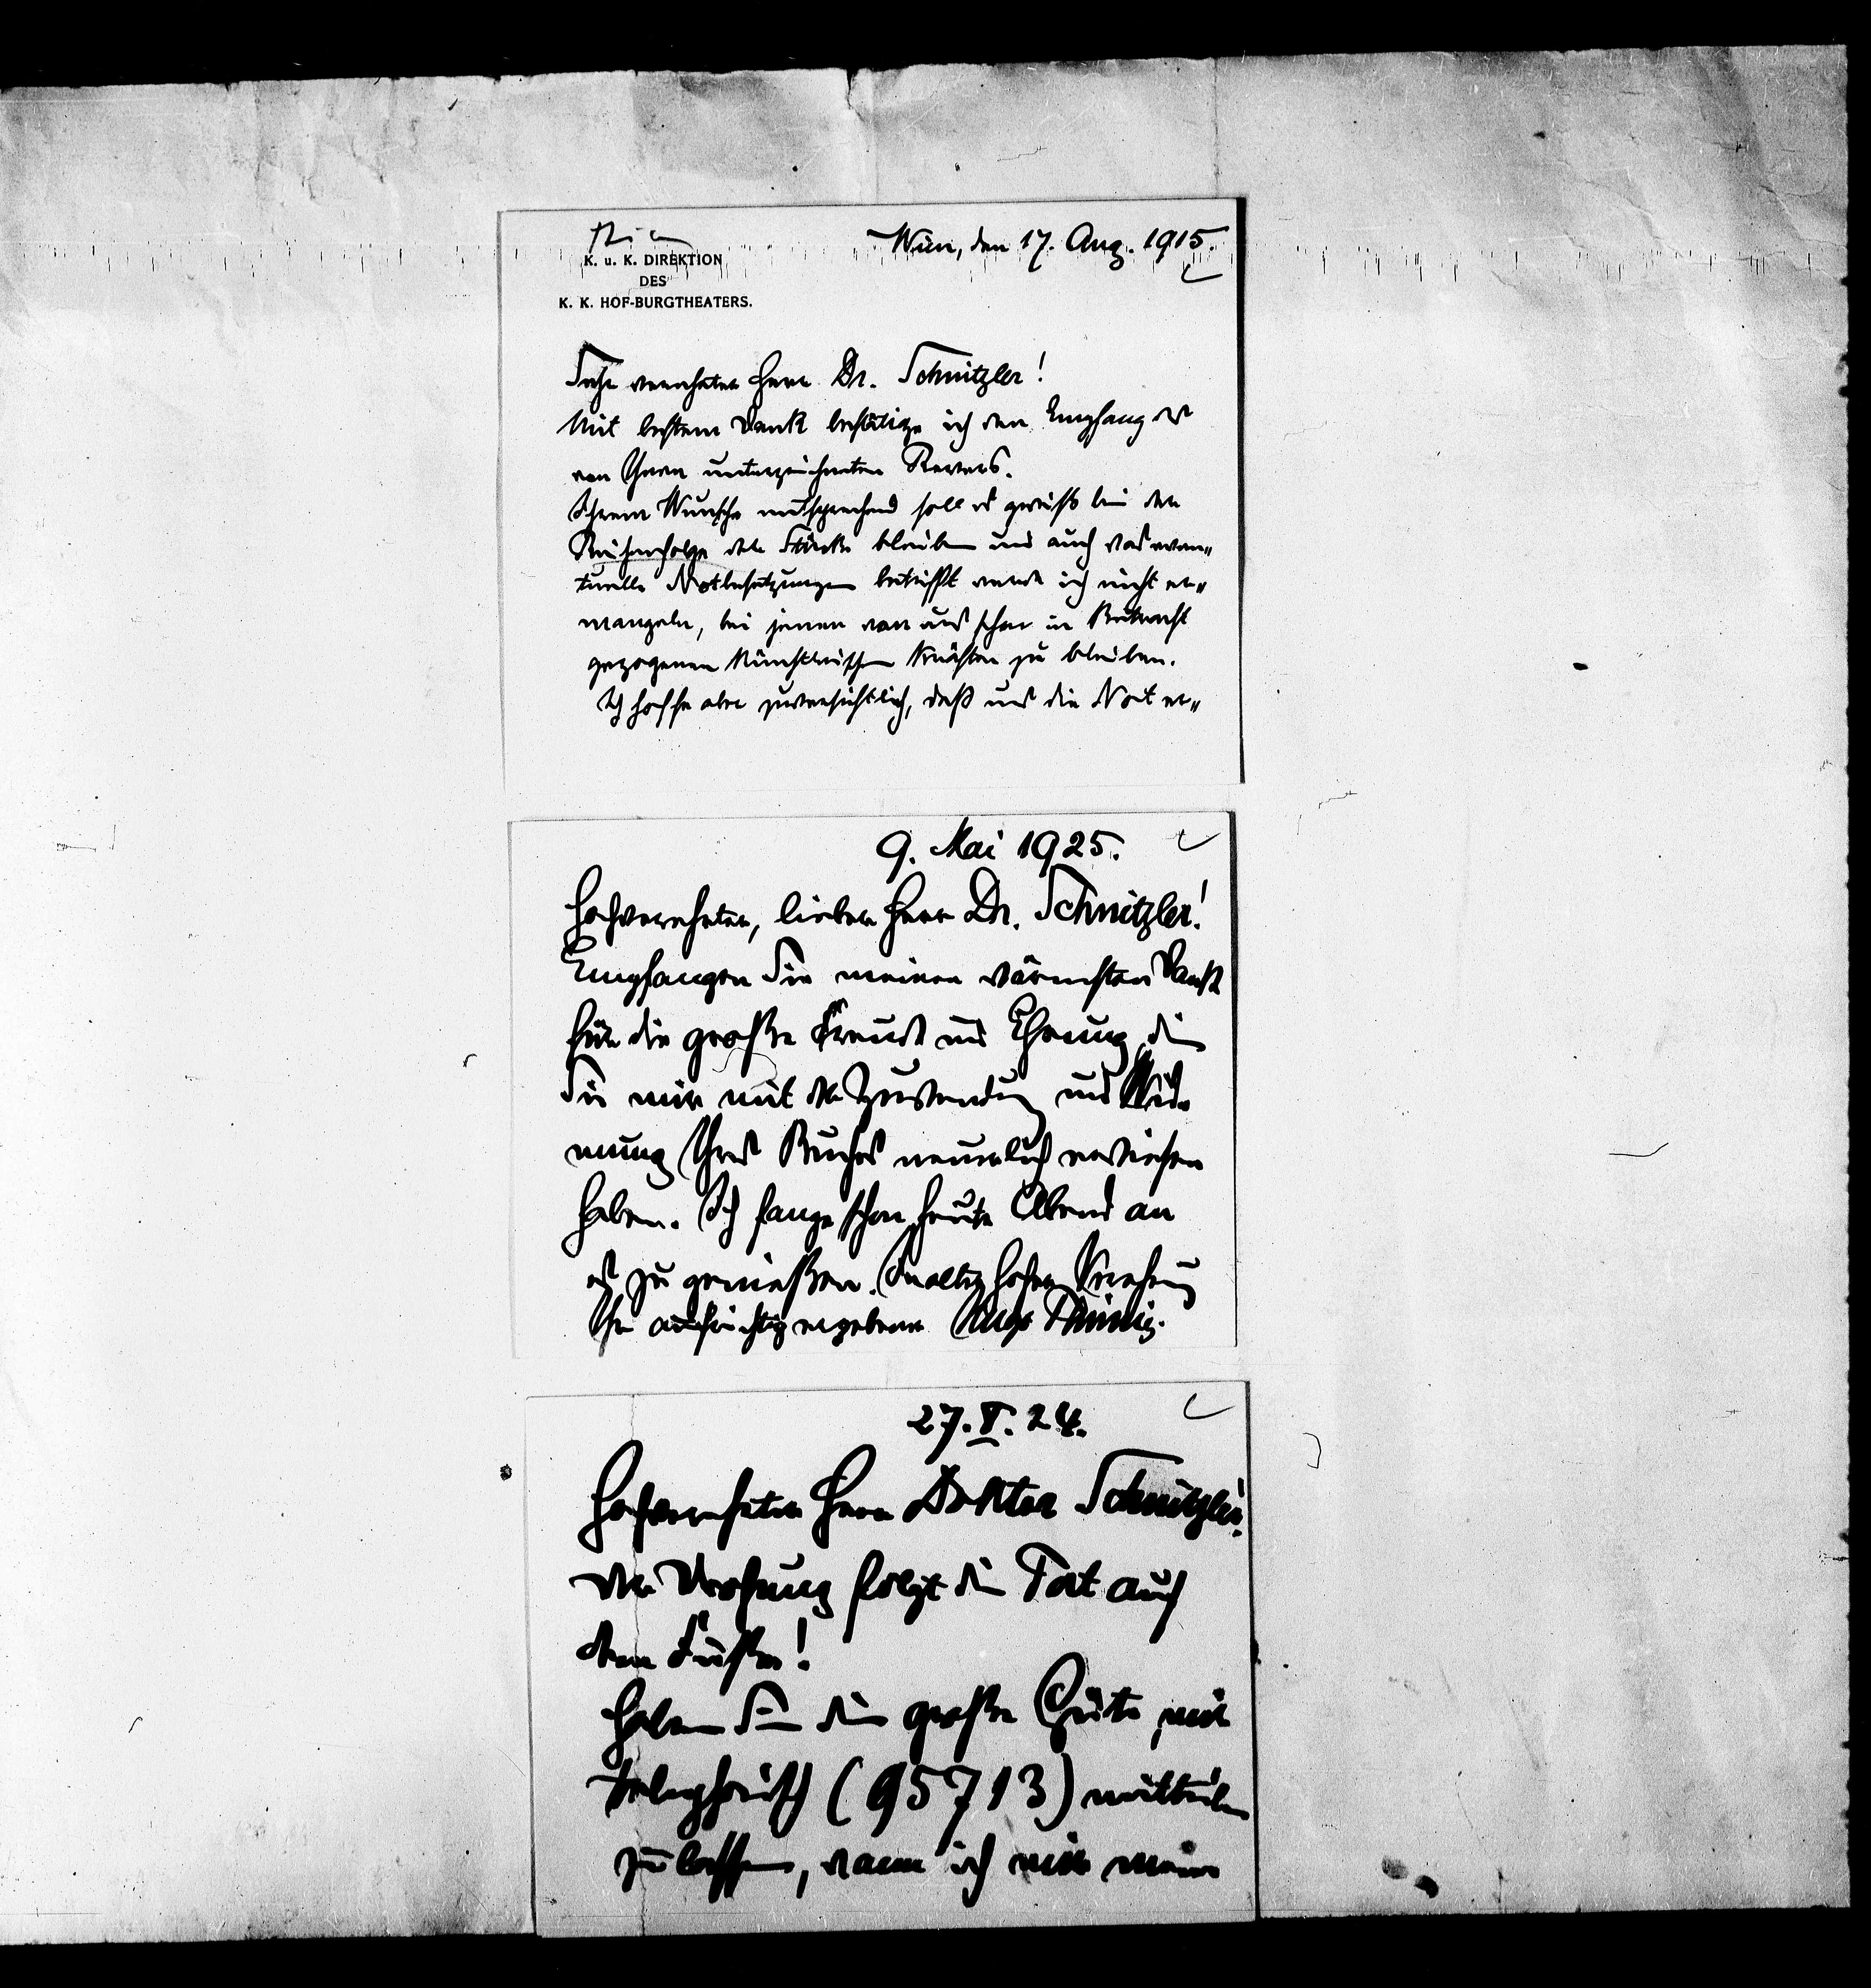 Thimig
Wien, den 17. Aug. 1915.
K. u. K. DIREKTION
DES
K. K. HOF-BURGTHEATERS.
Sehr verehrter Herr Dr. Schnitzler!
Mit bestem Dank bestätige ich den Empfang des
von Ihnen unterzeichneten Revers.
Ihrem Wunsche entsprechend soll es gewiß bei der
Reihenfolge der Stücke bleiben und auch was even„
tuelle Notbesetzungen betrifft werde ich nicht er„
mangeln, bei jenen von uns schon in Betracht
gezogenen künstlerischen Kräften zu bleiben.
Ich hoffe aber zuversichtlich, daß uns die Not er„
9. Mai 1925.
Hochverehrter, lieber Herr Dr. Schnitzler!
Empfangen Sie meinen wärmsten Dank
für die große Freude und Ehrung, die
Sie mir mit der Zuwendung und Wid„
mung Ihres Buches neuerlich erwiesen
haben. Ich fange schon heute Abend an
es zu genießen. In alter hoher Verehrung
Ihr aufrichtig ergebener Hugo Thimig.
27. V. 24.
Hochverehrter Herr Doktor Schnitzler!
Der Drohung folgt die Tat auf
dem Fuße!
Haben Sie die große Güte, mir
telephonisch (95713) mitteilen
zu lassen, wann ich mir meine